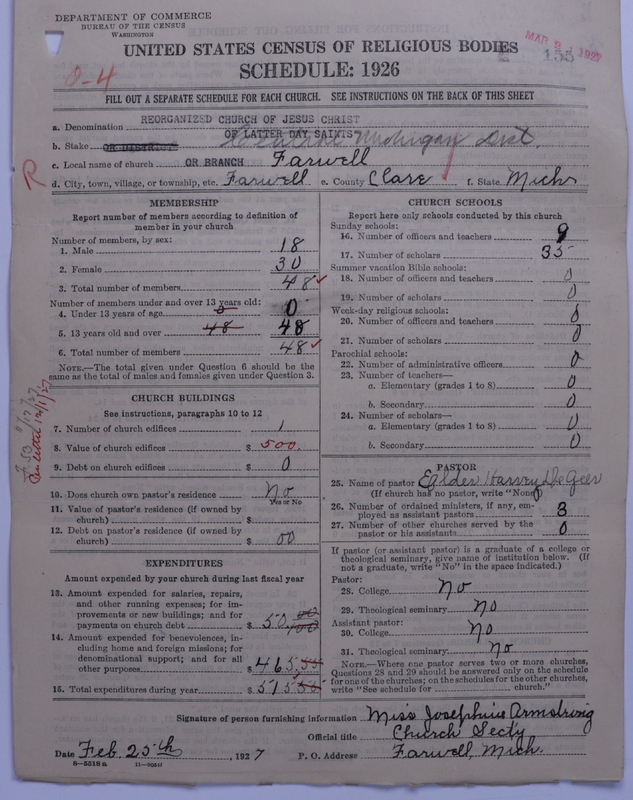 DEPARTMENT OF COMMERCE
BUREAU OF THE CENSUS
WASHINGTON
MAR 2 1927
155
UNITED STATES CENSUS OF RELIGIOUS BODIES
0-4
SCHEDULE: 1926
FILL OUT A SEPARATE SCHEDULE FOR EACH CHURCH. SEE INSTRUCTIONS ON THE BACK OF THIS SHEET
REORGANIZED CHURCH OF JESUS CHRIST
a. Denomination
OF LATTER DAY SAINTS
b. Stake OR DISTRICT Central Michigan Dist.
c. Local name of church OR BRANCH Farwell
R
d. City, town, village, or township, etc. Farwell e. County Clare f. State Mich
MEMBERSHIP
Report number of members according to definition of member in your church
Number of members, by sex:
1. Male 18
2. Female 30
3. Total number of members 48
Number of members under and over 13 years old:
4. Under 13 years of age 0
5. 13 years old and over 48 48
6. Total number of members 48
NOTE.—The total given under Question 6 should be the
same as the total of males and females given under Question 3.
CHURCH BUILDINGS
See instructions, paragraphs 10 to 12
7. Number of church edifices 1
8. Value of church edifices $ 500.
9. Debt on church edifices $ 0
10. Does church own pastor's residence No
Yes or No
11. Value of pastor's residence (if owned by
church) $
12. Debt on pastor's residence (if owned by
church) $ 00
EXPENDITURES
Amount expended by your church during last fiscal year
13. Amount expended for salaries, repairs,
and other running expenses; for im-
provements or new buildings; and for
payments on church debt $ 50.00
14. Amount expended for benevolences, in-
cluding home and foreign missions; for
denominational support; and for all
other purposes $ 465.55
15. Total expenditures during year $ 515.55
CHURCH SCHOOLS
Report here only schools conducted by this church
Sunday schools:
16. Number of officers and teachers 9
17. Number of scholars 35
Summer vacation Bible schools:
18. Number of officers and teachers 0
19. Number of scholars 0
Week-day religious schools:
20. Number of officers and teachers 0
21. Number of scholars 0
Parochial schools:
22. Number of administrative officers 0
23. Number of teachers—
a. Elementary (grades 1 to 8) 0
b. Secondary 0
24. Number of scholars—
a. Elementary (grades 1 to 8) 0
b. Secondary 0
PASTOR
25. Name of pastor Ealder Harvey DeGeer
(If church has no pastor, write "None")
26. Number of ordained ministers, if any, em-
ployed as assistant pastors 3
27. Number of other churches served by the
pastor or his assistants 0
If pastor (or assistant pastor) is a graduate of a college or
theological seminary, give name of institution below. (If
not a graduate, write "No" in the space indicated.)
Pastor:
28. College No
29. Theological seminary No
Assistant pastor:
30. College No
31. Theological seminary No
NOTE.—Where one pastor serves two or more churches,
Questions 28 and 29 should be answered only on the schedule
for one of the churches; on the schedules for the other churches,
write "See schedule for church."
Signature of person furnishing information Miss Josephine Armstrong
Official title Church Secty
Date Feb. 25th, 1927 P. O. Address Farwell, Mich.
8—5518 a